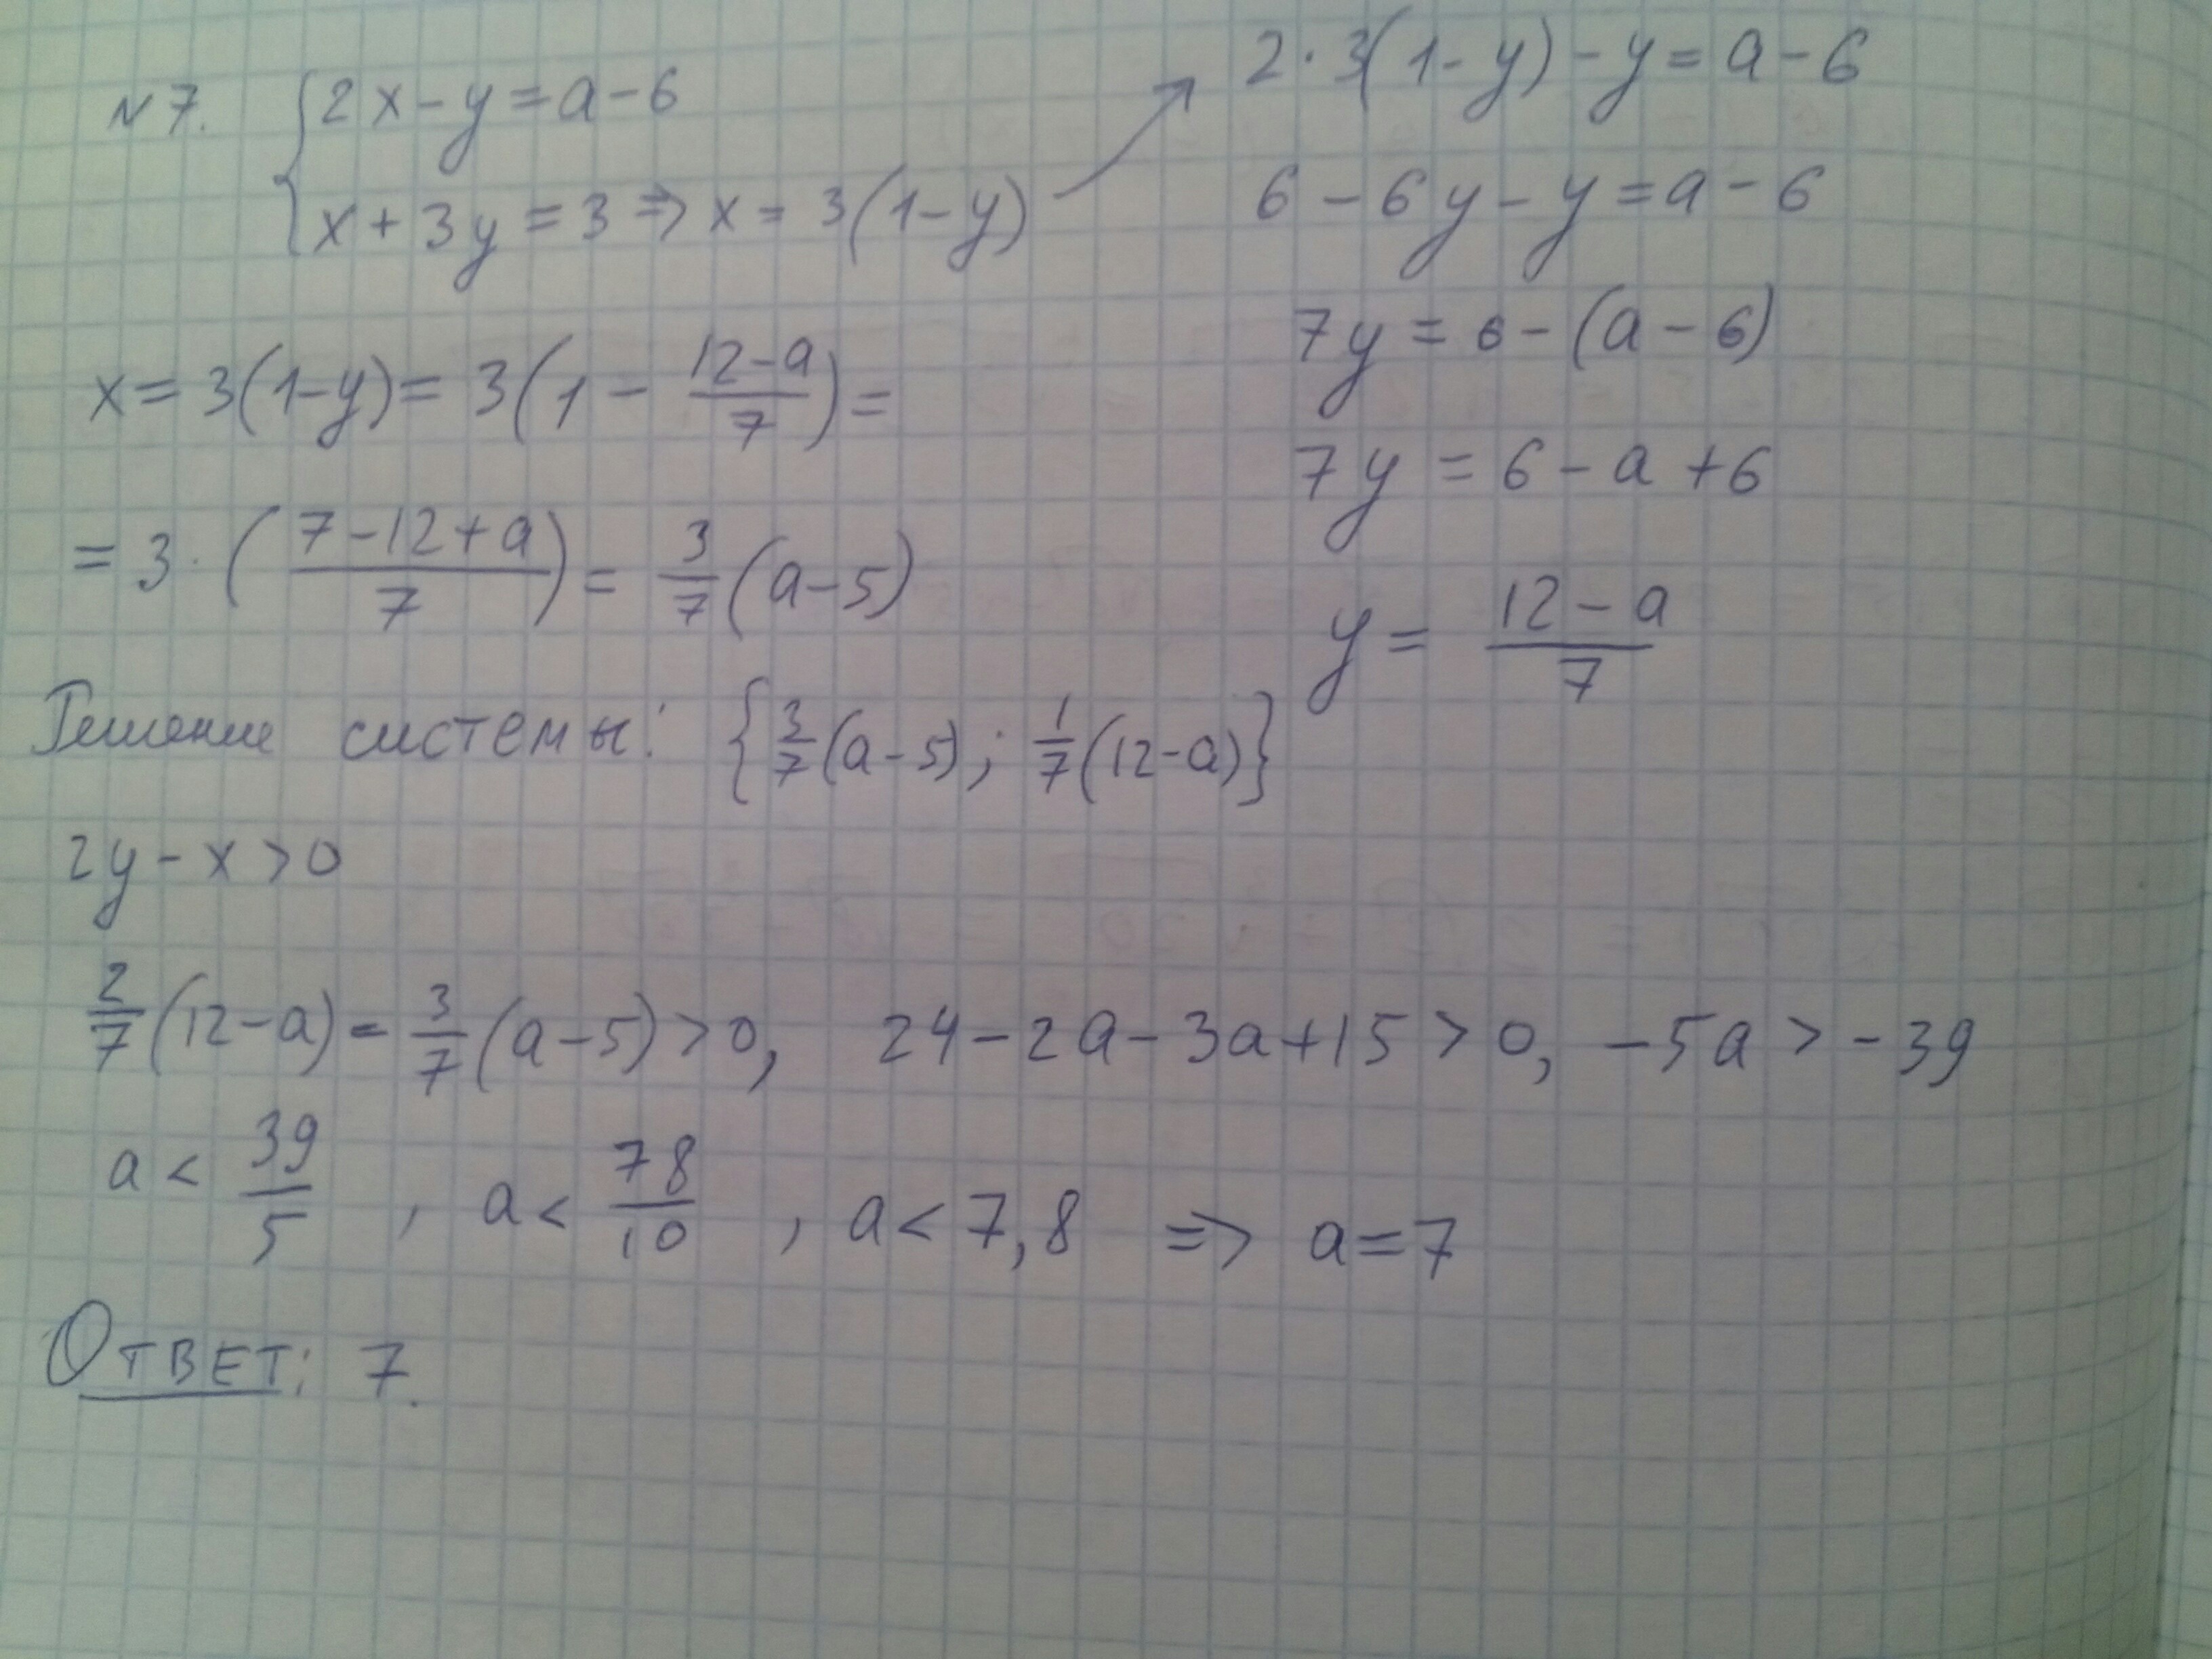 N 7. { 2x - y = a - 6
x + 3y = 3 ⇒ x = 3(1 - y)
2 · 3(1 - y) - y = a - 6
6 - 6y - y = a - 6
7y = 6 - (a - 6)
7y = 6 - a + 6
y = \frac{12 - a}{7}
x = 3(1 - y) = 3(1 - \frac{12 - a}{7}) =
= 3 · (\frac{7 - 12 + a}{7}) = \frac{3}{7}(a - 5)
Решение системы: {\frac{3}{7}(a - 5); \frac{1}{7}(12 - a)}
2y - x > 0
\frac{2}{7}(12 - a) - \frac{3}{7}(a - 5) > 0, 24 - 2a - 3a + 15 > 0, -5a > -39
a < \frac{39}{5}, a < \frac{78}{10}, a < 7,8 ⇒ a = 7
Ответ: 7.